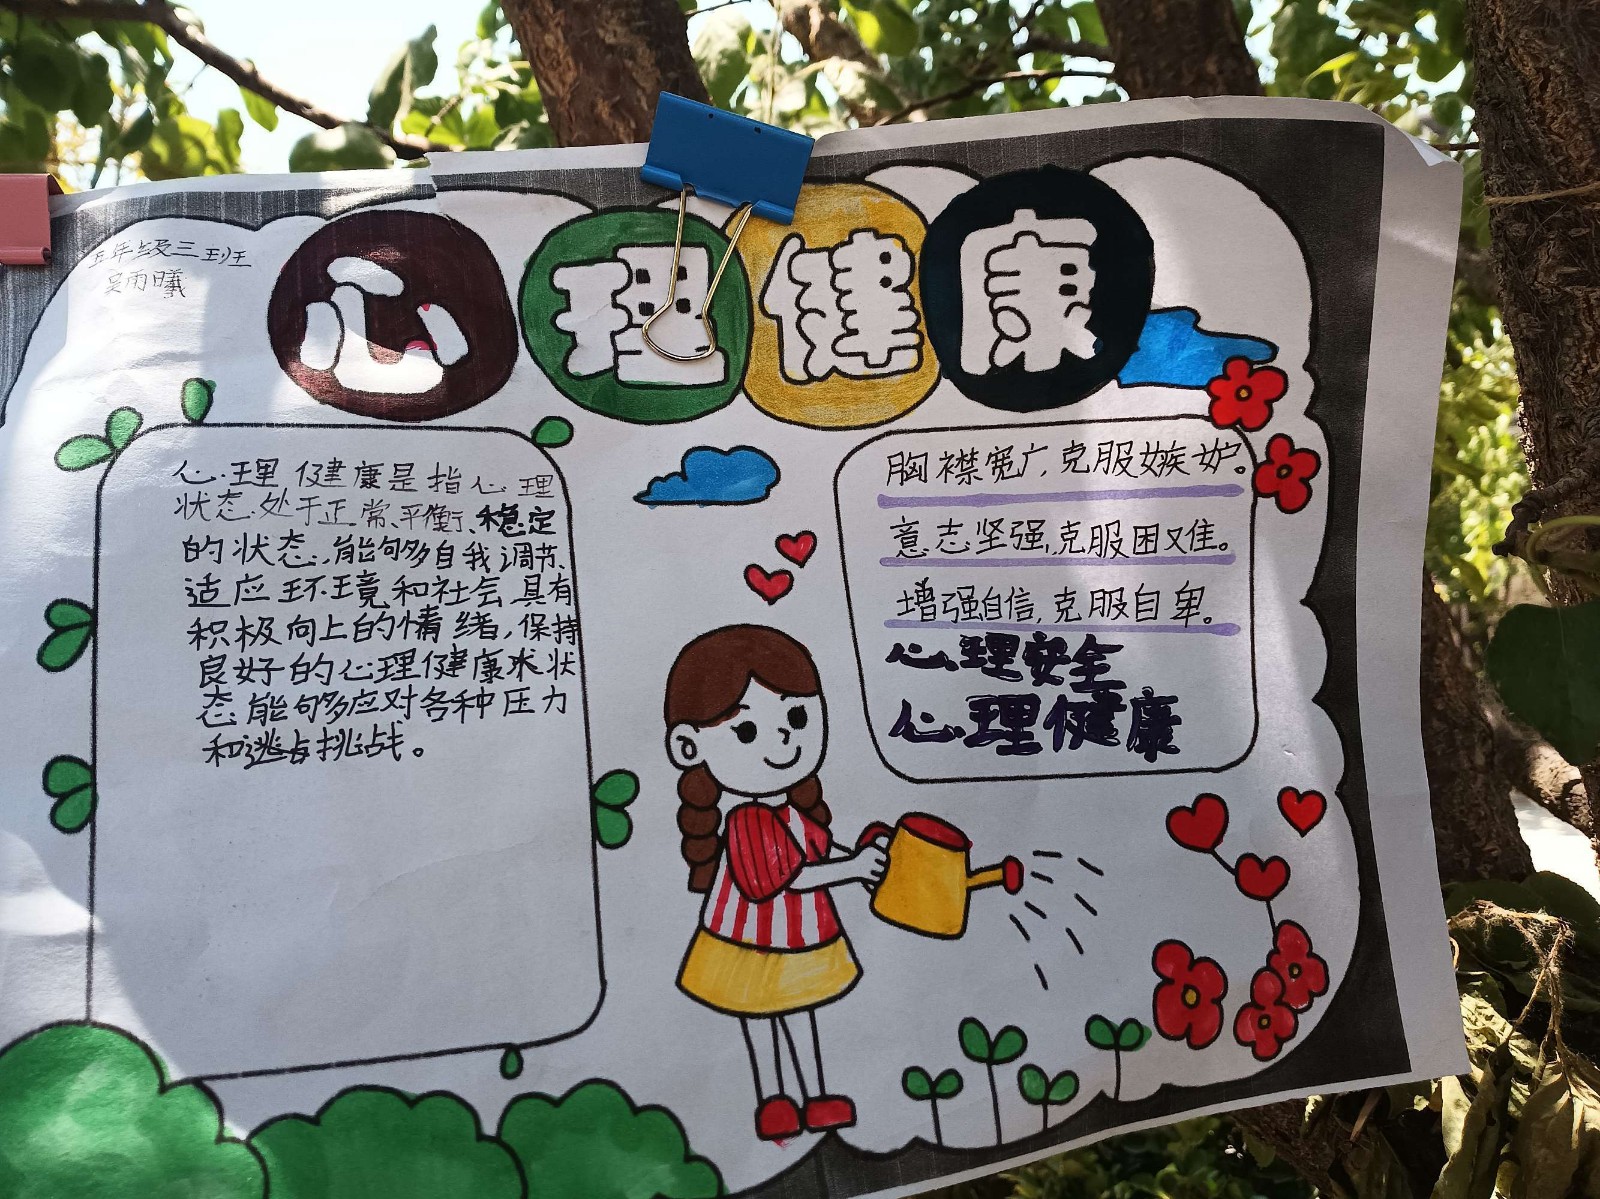 五年级三班
吴雨曦
心理健康
心理健康是指心理
状态处于正常、平衡、稳定
的状态,能够自我调节、
适应环境和社会具有
积极向上的情绪,保持
良好的心理健康状
态能够应对各种压力
和挑战。
胸襟宽广,克服嫉妒。
意志坚强,克服困难。
增强自信,克服自卑。
心理安全
心理健康